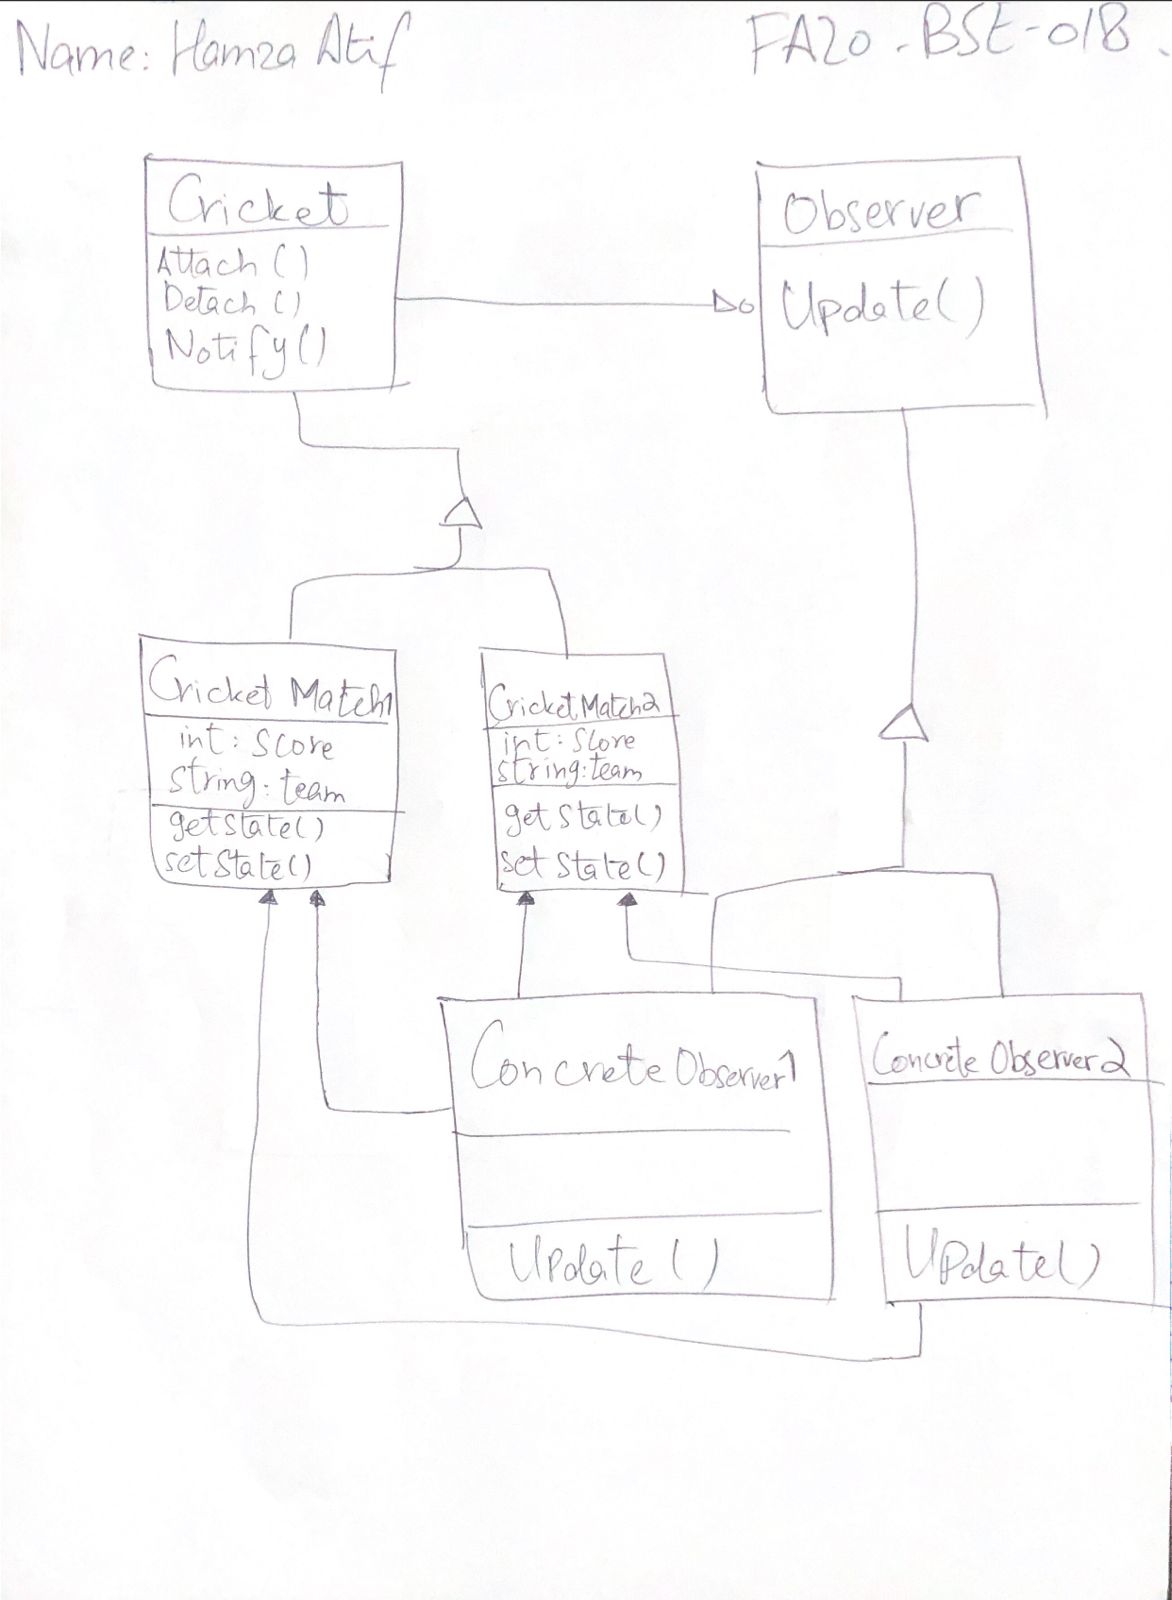 Name: Hamza Atif
FA20-BSE-018.
Cricket
Attach ()
Detach ()
Notify ()
Observer
Update()
Cricket Match1
int: Score
string: team
getState()
setState()
Cricket Match2
int: Score
string: team
get State()
set State()
Concrete Observer1
Update ()
Concrete Observer2
UPdate()